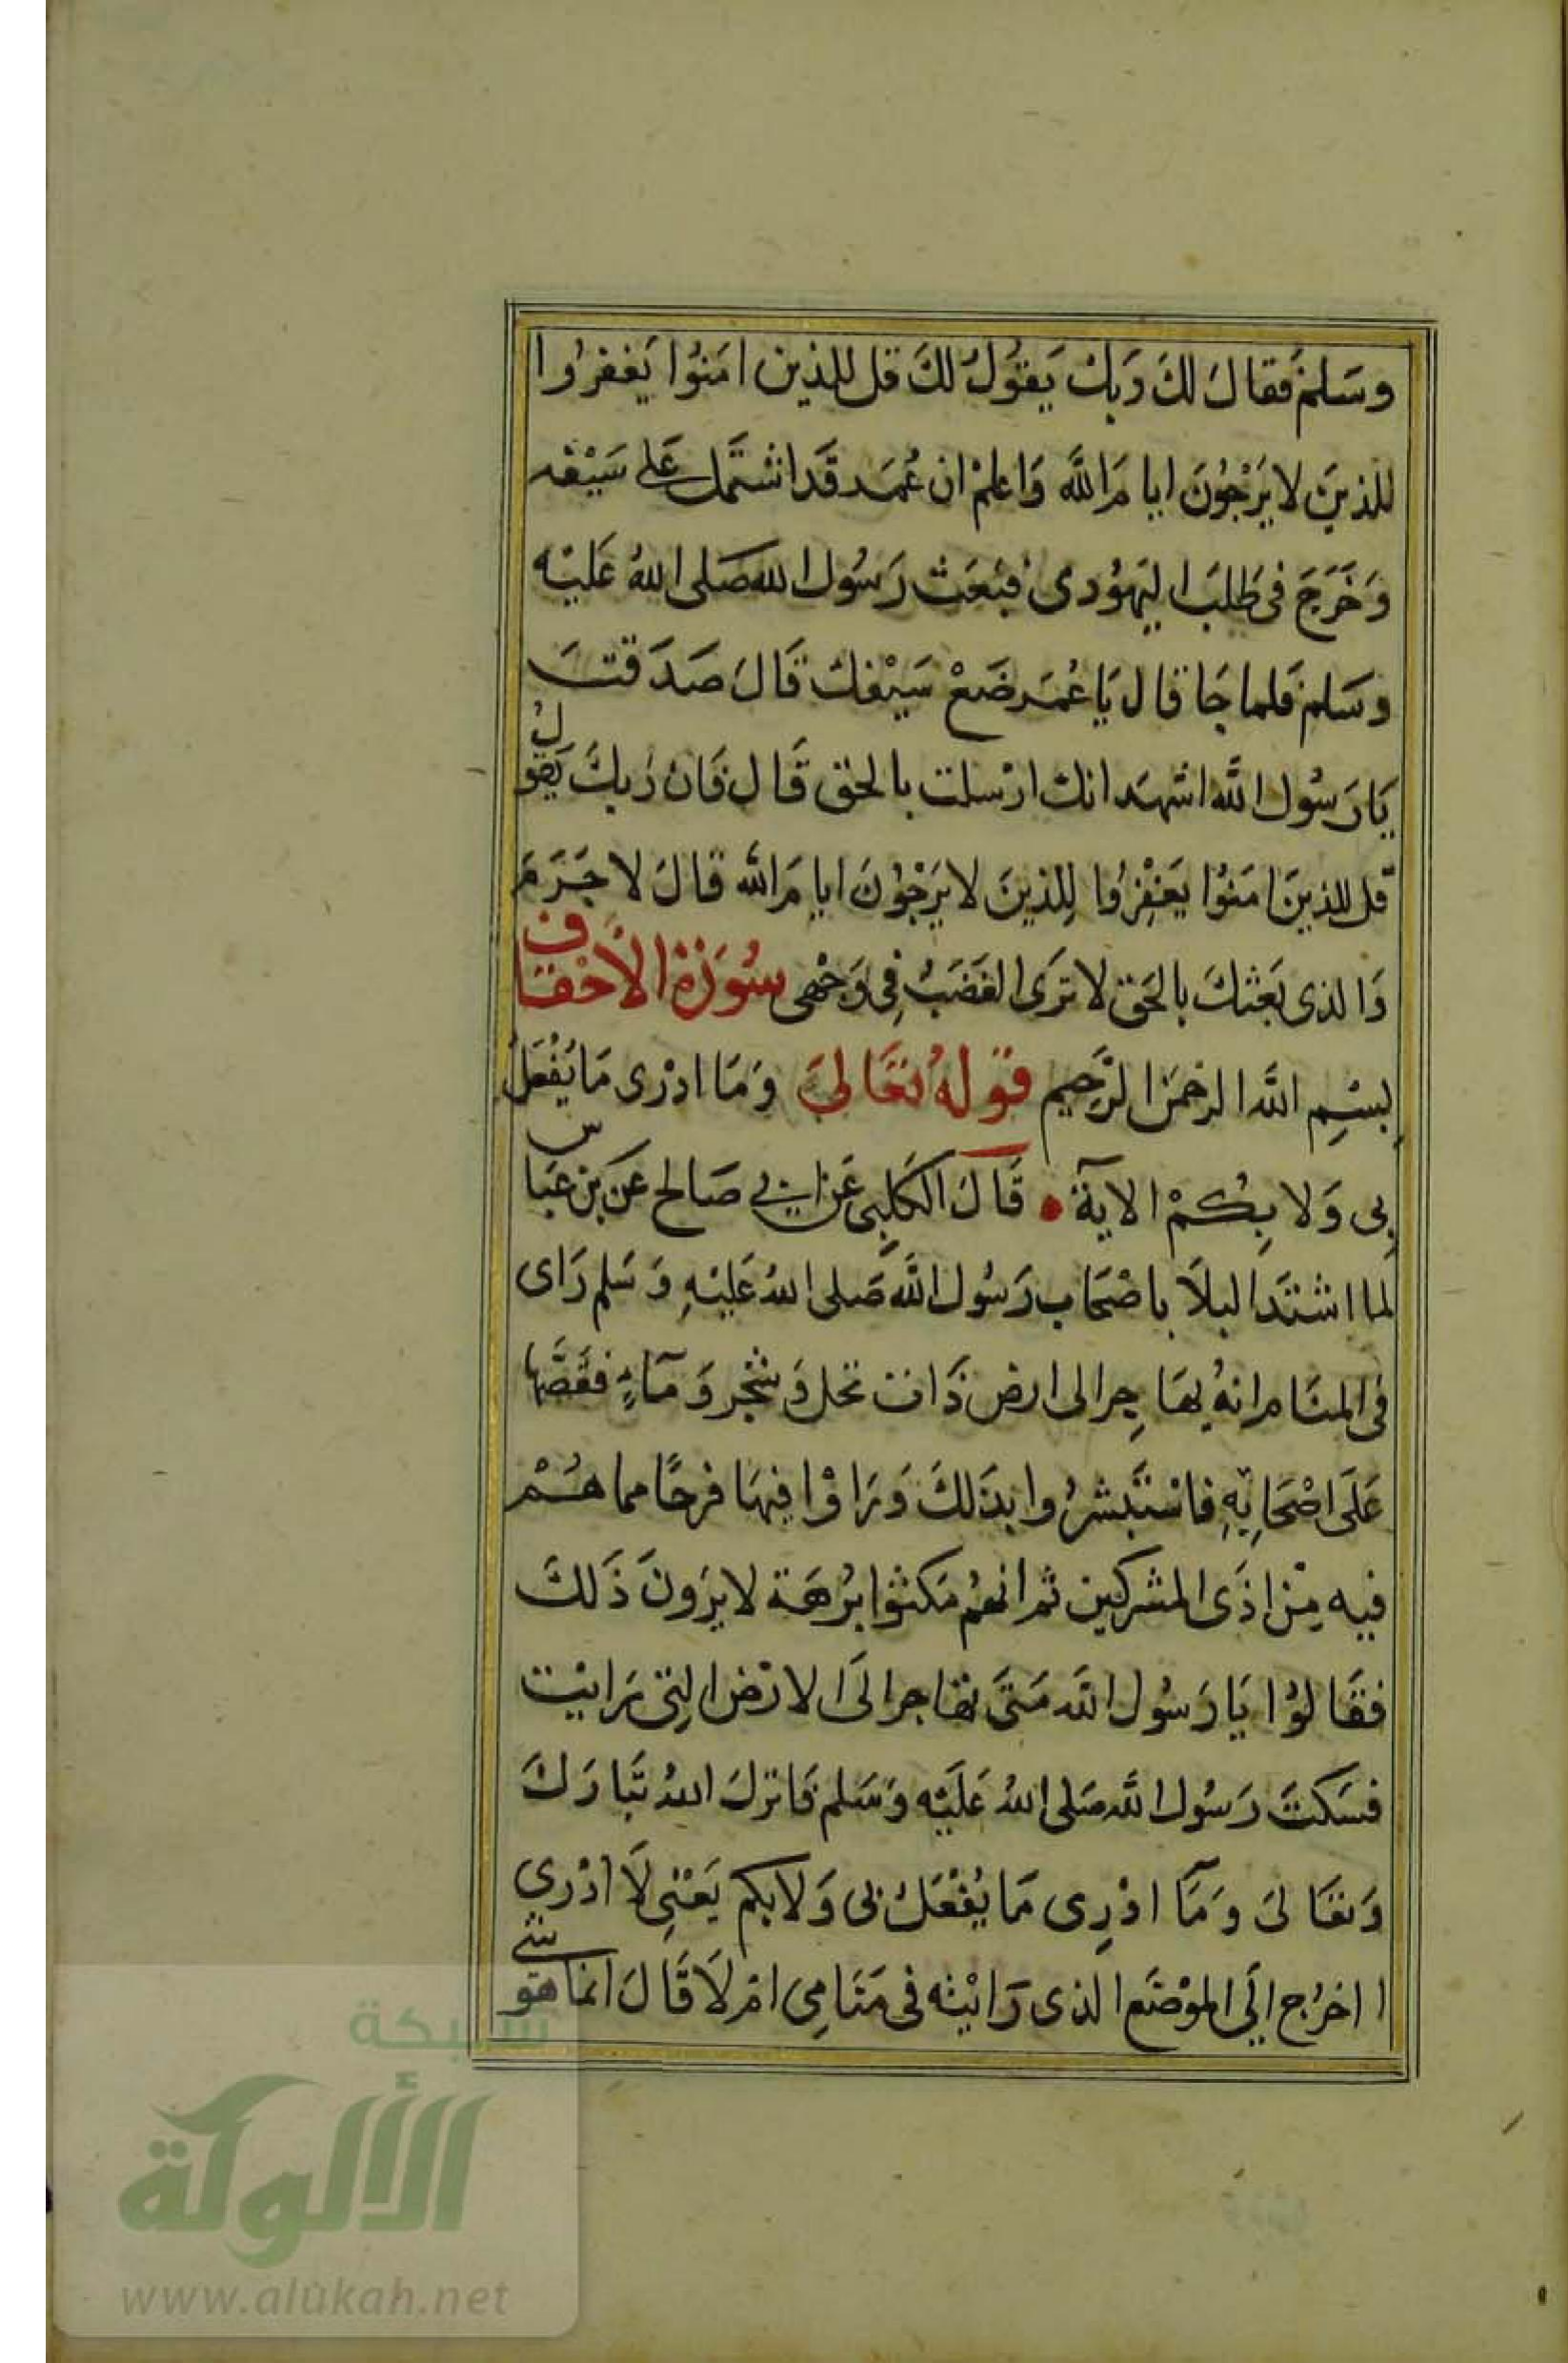 وسَلمَ فقالَ لكَ رَبك يَقوُلُ لكَ قل للذين امَنوُا يَغفرُوا
للذينَ لا يَرْجُونَ ايامَ اللَّه وَاعلمْ ان عُمَر قَد اشتَمل عَلى سَيْفه
وَخَرَجَ فى طَلبَ اليَهوُدى فبَعَث رَسُول الله صَلى اللهُ عَليْه
وسَلم فَلما جَا قال يَا عُمَر ضَعْ سَيْفك قَالَ صَدَقتَ
يَا رَسُول اللَّه اشهَد انك ارْسلت بالحَق قَال فَان رَبكَ يَقول
قل للذينَ امَنوُا يَغفِرُوا لِلذينَ لا يَرْجوُنَ ايامَ اللَّه قالَ لا جَرَمَ
وَالذى بَعَثكَ بالحَق لا تَرَى الغَضَبُ فِى وَجْهى سُورَةُ الأحْقَاف
بِسْمِ اللَّه الرحمَن الرَّحِيم قولهُ تعَالىَ وَمَا ادْرى مَا يُفْعَلُ
بِى وَلا بِكُمْ الاية قَالَ الكَلبِى عَن ابي صَالح عَن بن عَباس
لما اشتَد البلَا باصْحَاب رَسُول اللَّه صَلى اللهُ عَليْهِ وَسَلم رَاى
فى المنَام انهُ يهَاجِر الى ارض ذَات نَخل وَشجَر وَمَآءٍ فقَصَّها
عَلَى اصْحَابِهِ فاسْتَبشرُوا بذَلكَ وَرَاوْا فيهَا فرَحًا مما هُمْ
فيه مِنْ اذَى المشركين ثم انهُم مَكثوُا برُهَة لا يرَونَ ذَلكَ
فقَالوُا يَا رَسُول اللَّه مَتَى نهَاجر الَى الارْض التِى رَايْت
فسَكتَ رَسُول اللَّه صَلى اللهُ عَلَيْه وَسَلم فَانزلَ اللهُ تَبَارَكَ
وَتعَالىَ وَمَآ ادْرِى مَا يُفْعَلُ بى وَلا بكم يَعْنِى لَا ادْرِي
ا اخرُج الَى الموْضَع الذى رَايْته فى مَنَامِى امْ لَا قَالَ انما هو شي
شبكة
الألوكة
www.alukah.net